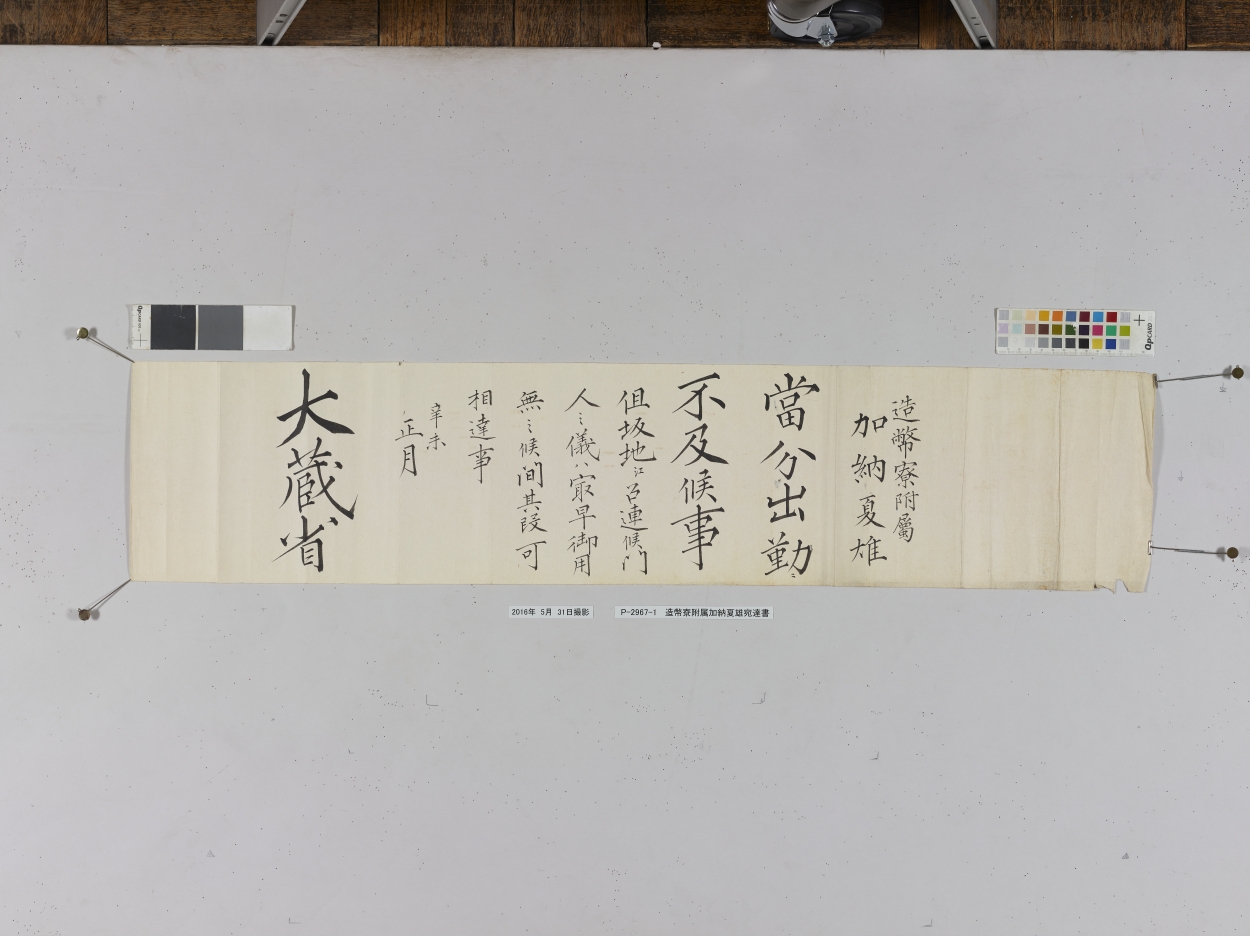 造幣寮附屬
加納夏雄
當分出勤ニ
不及候事
但坂地江召連候門
人々儀ハ冣早御用
無之候間其段可
相達事
辛未
正月
大蔵省
2016年 5月 31日撮影
P-2967-1 造幣寮附属加納夏雄宛達書
QPCARD